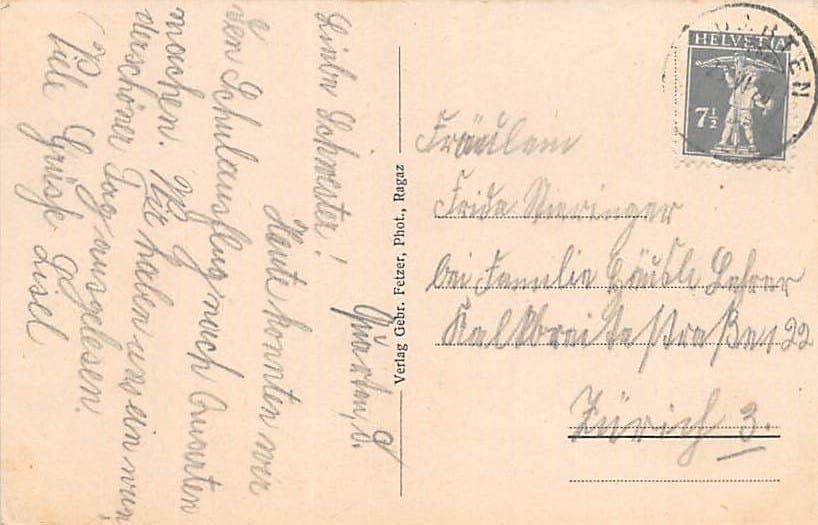 Quarten, d.
Liebe Schwester!
Heute konnten wir
den Schulausflug nach Quarten
machen. Wir haben uns ein wun-
derschöner Tag ausgelesen.
Viele Grüße Lisel
Verlag Gebr. Fetzer, Phot., Ragaz
QUARTEN
HELVETIA
7½
Fräulein
Frida Nieringer
bei Familie Häusli Lehrer
Kalkbreitestraße 122
Zürich 3.